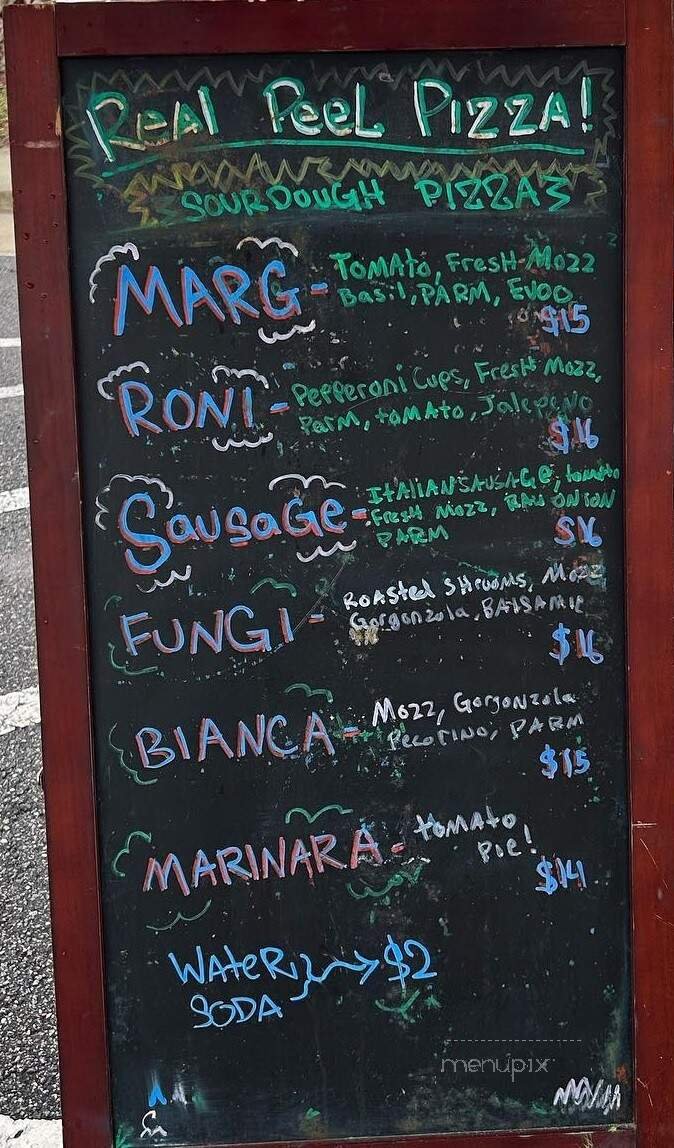 Real Peel Pizza!
SOURDOUGH PIZZAS
MARG - TOMAtO, FresH Mozz
Basil, PARM, EVOO
$15
RONI - Pepperoni Cups, FresH Mozz,
Parm, tOMAtO, Jalepeno
$16
SausaGe - ItALIAN SAUSAGe, tomato
FresH Mozz, RAW ONION
PARM
$16
FUNGI - ROASted SHrooms, Mozz
Gorgonzola, BALSAMIC
$16
BIANCA - Mozz, Gorgonzola
Pecorino, PARM
$15
MARINARA - tOMAtO
Pie!
$14
WAteR
SODA → $2
menupix